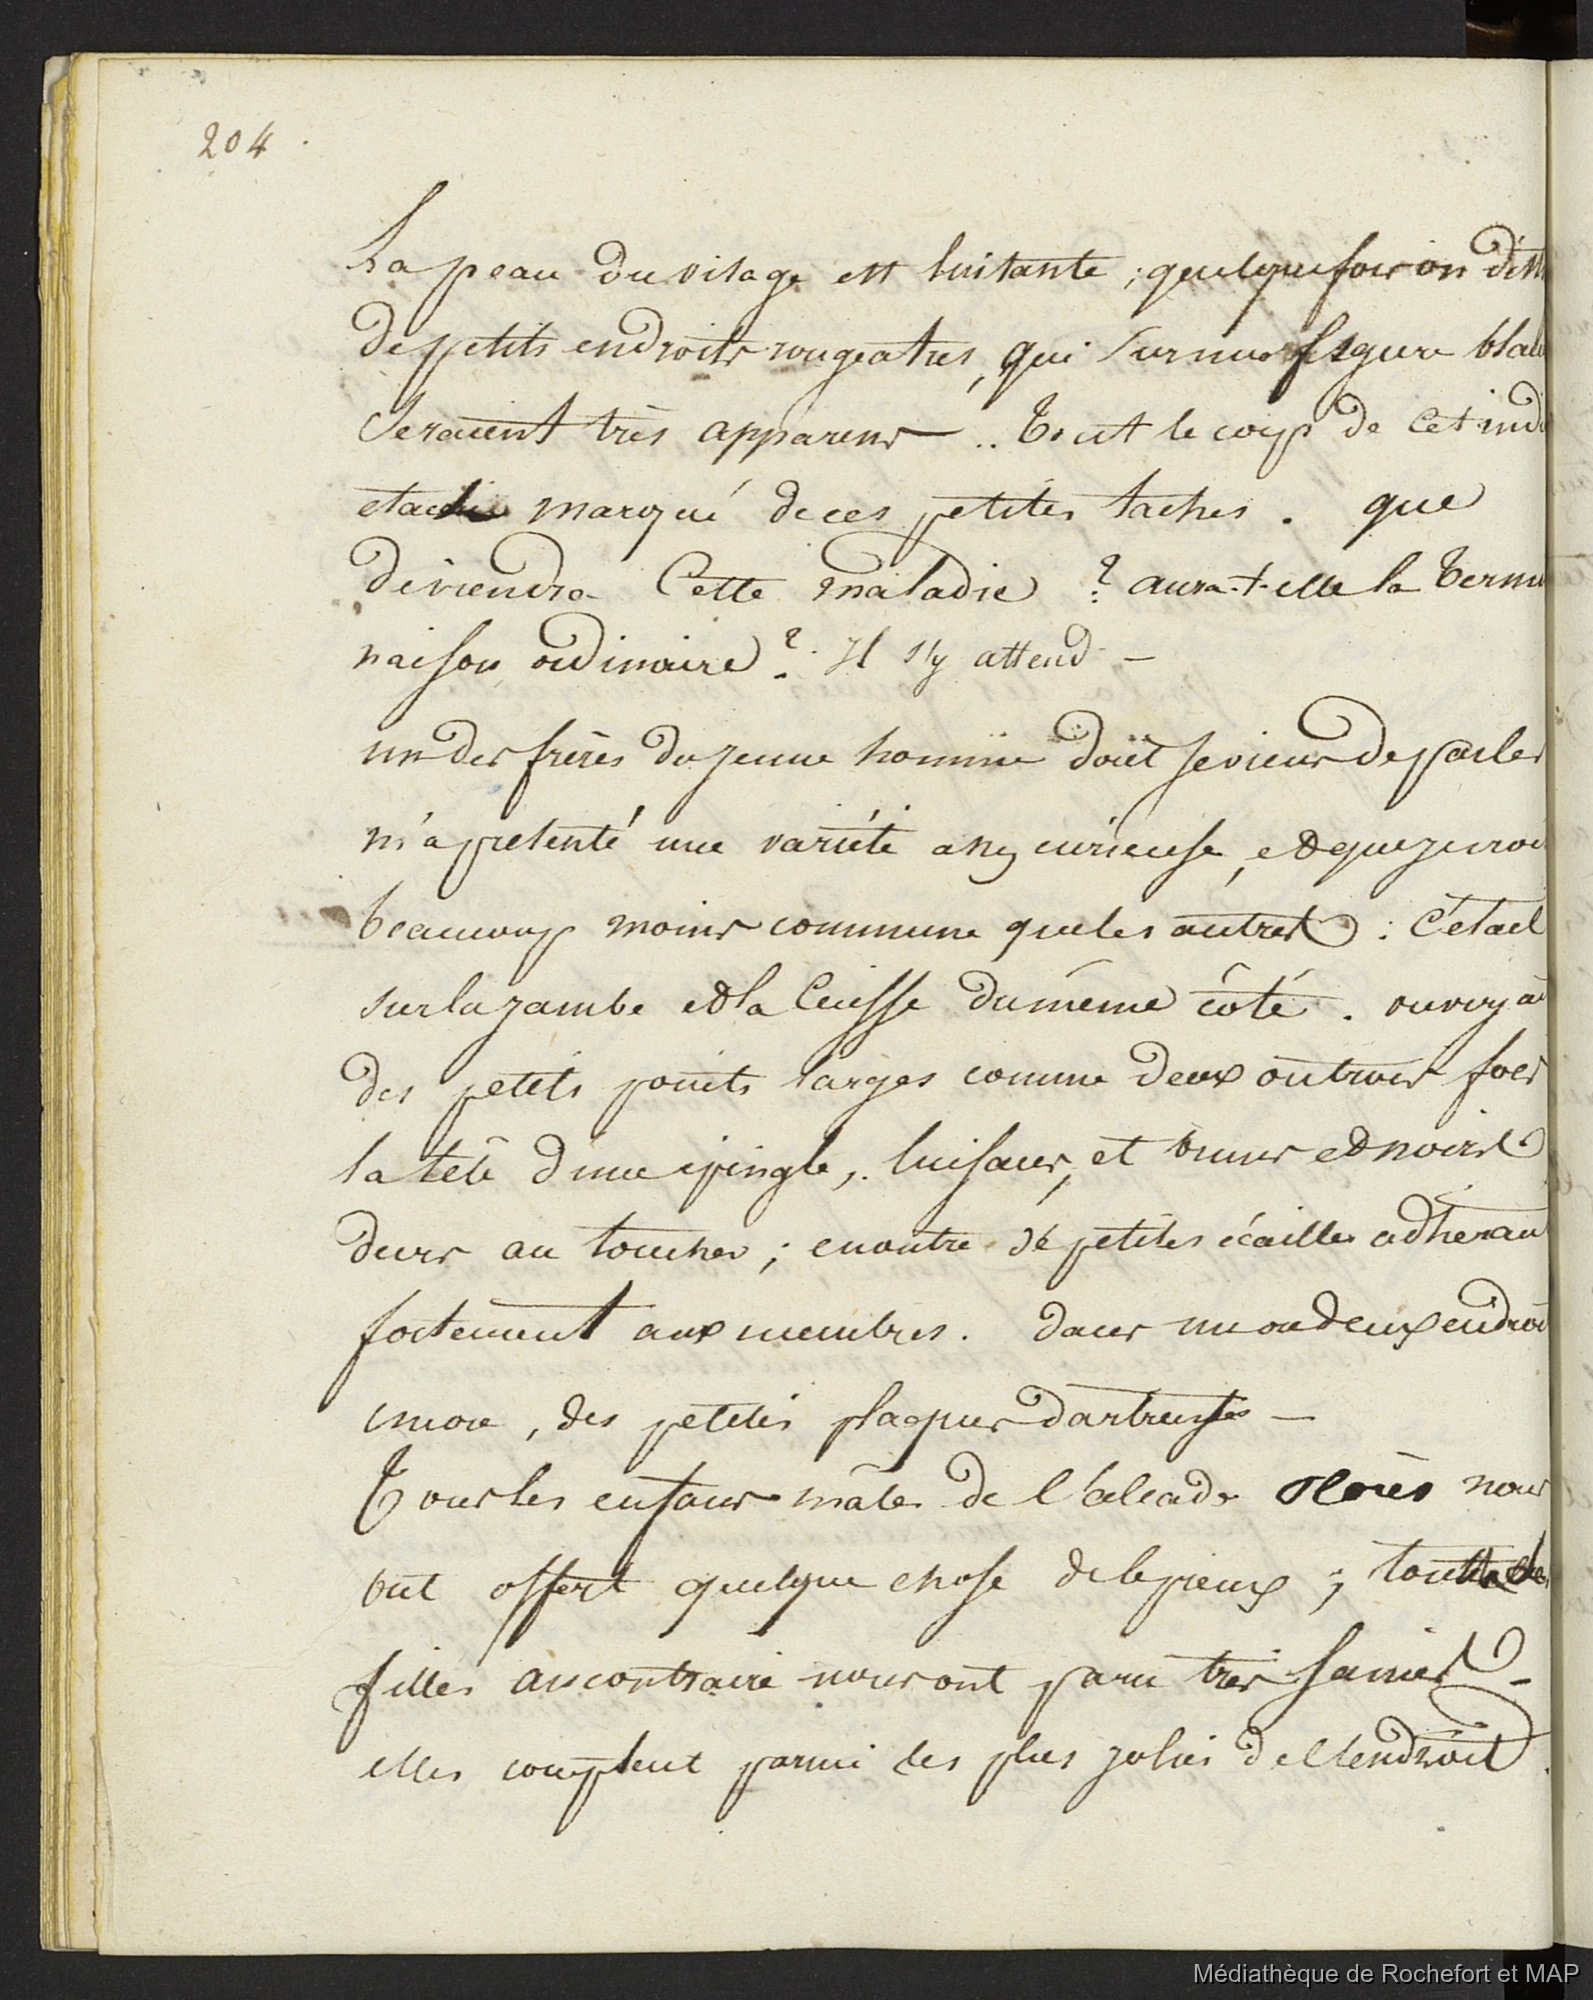 204
La peau du visage est luisante ; quelquefois on dist
de petits endroits rougeatres, qui sur une figure blan
seraient très apparens — .. Tout le corps de cet indi
etait marqué de ces petites taches . que
deviendra Cette maladie ? aura-t-elle la termi
naison ordinaire ? Il s'y attend —
un des frères du jeune homme dont je viens de parler
m'a presenté une variété assez curieuse, et que je croi
beaucoup moins commune que les autres : C'etait
sur la jambe et la Cuisse du même côté . on voya
des petits points larges comme deux ou trois fois
la tête d'une epingle, luisans, et bruns et noirs
durs au toucher ; en outre de petites écailles adheran
fortement aux membres . dans un ou deux endroi
encore , des petites plaques dartreuses —
Tous les enfans mâles de l'alcade nous
ont offert quelque chose de lepreux ;
filles au contraire nous ont paru très saines —
elles comptent parmi les plus jolies de l'endroit .
Médiathèque de Rochefort et MAP